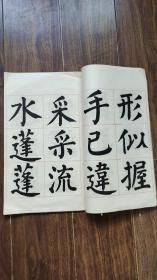 形似握
手已違
采采流
水蓬蓬